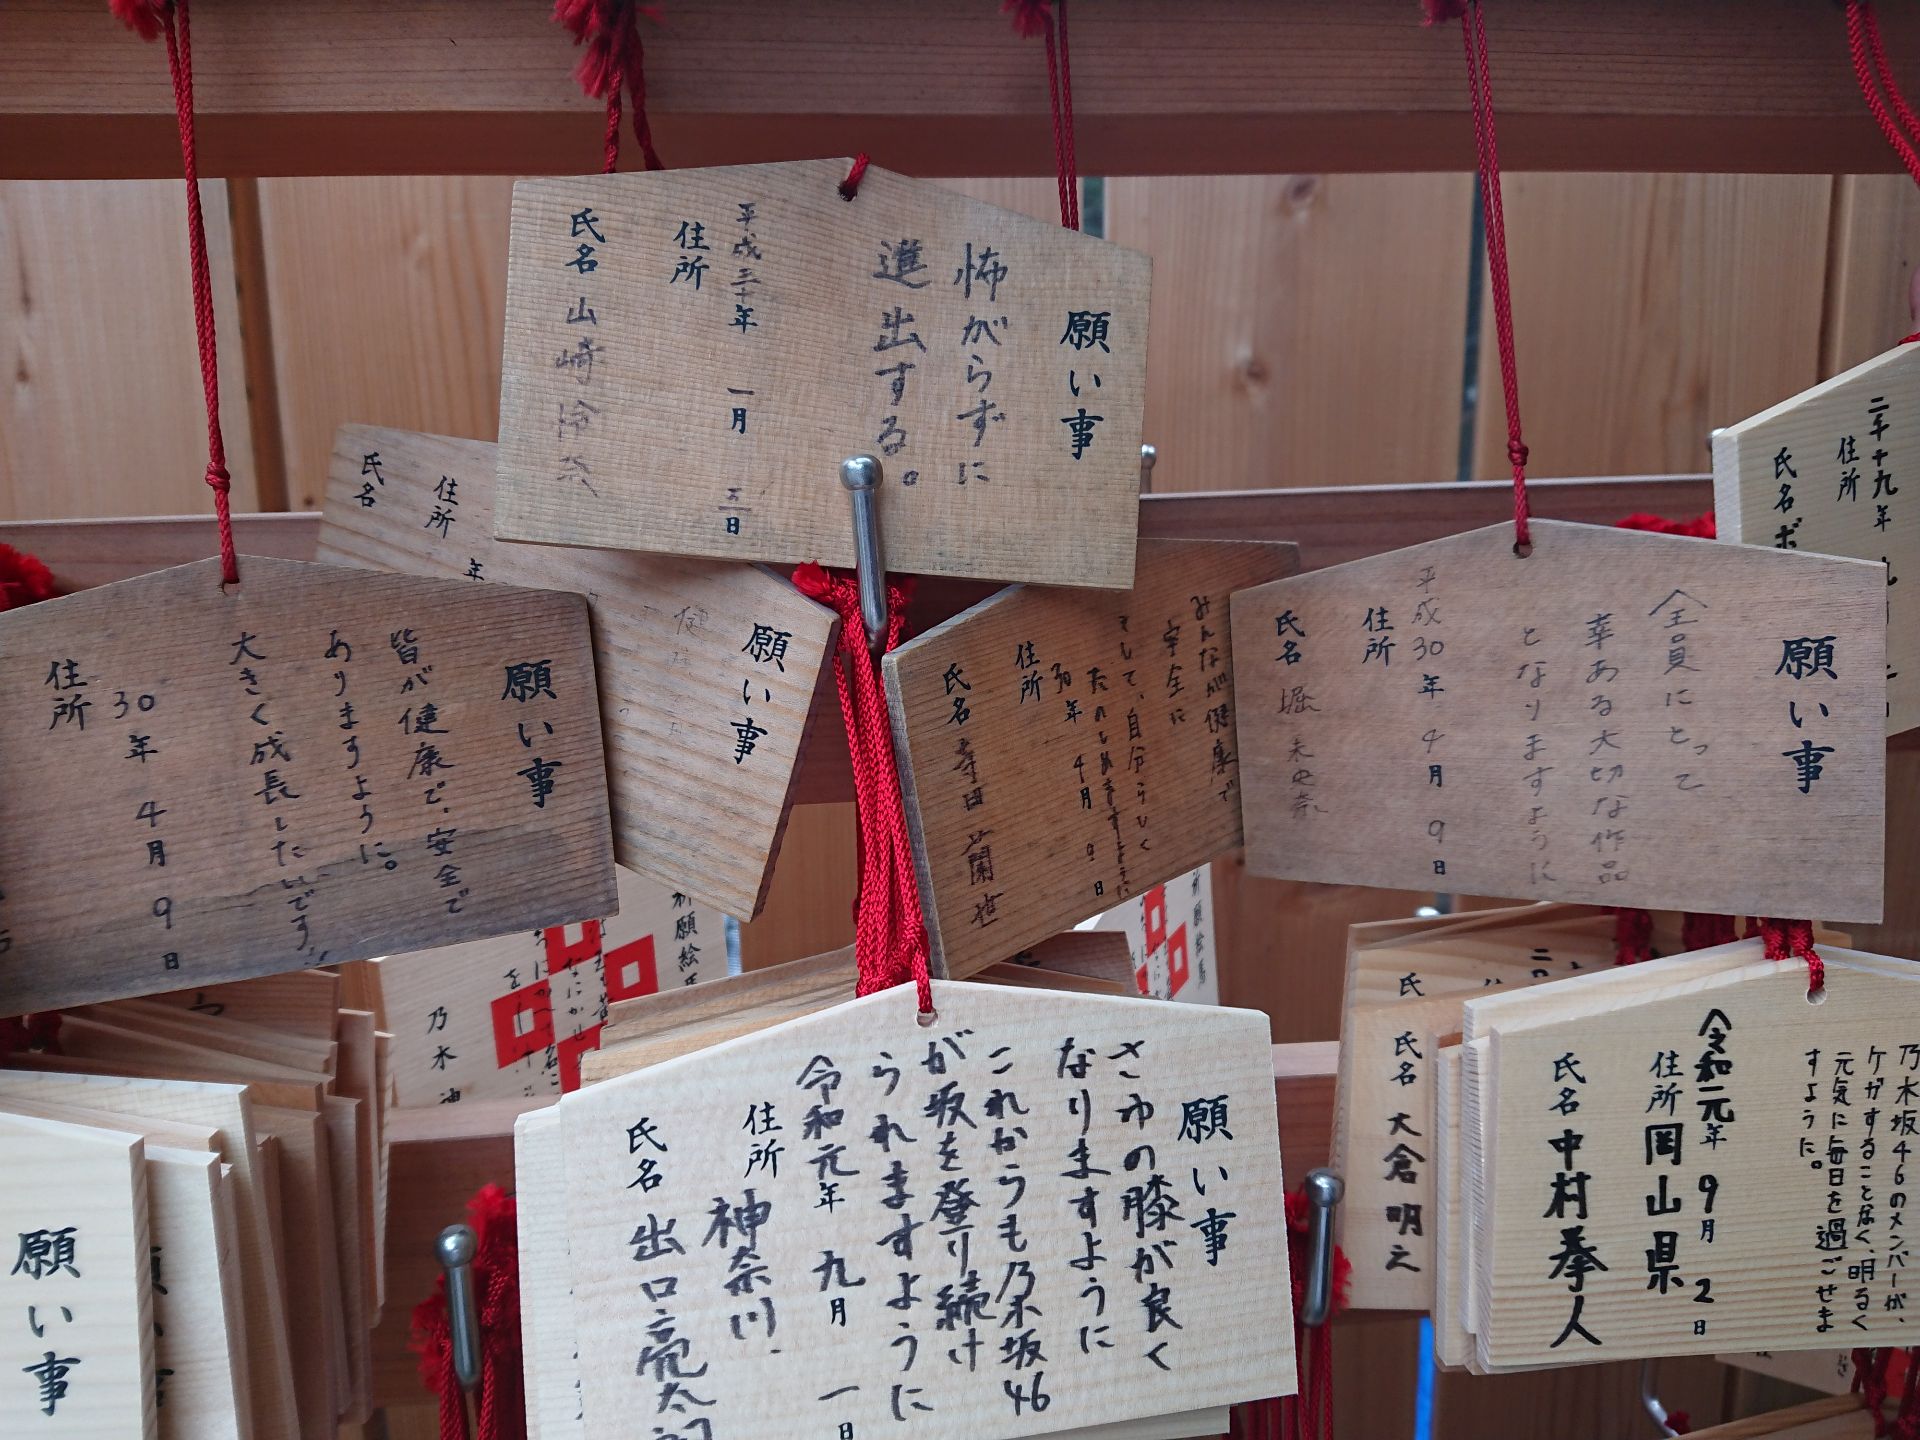 願い事
怖がらずに
進出する。
平成三十年 一月 三日
住所
氏名 山崎怜奈
願い事
住所
氏名
年
願い事
皆が健康で、安全で
ありますように。
大きく成長したいです!!
30年 4月 9日
住所
みんなが健康で
安全に
そして、自分らしく
たのしめますように
30年 4月 9日
住所
氏名 寺田 蘭世
願い事
全員にとって
幸ある大切な作品
となりますように
平成30年 4月 9日
住所
氏名 堀 未央奈
二千十九年
住所
氏名
祈願絵馬
乃木
祈願絵馬
願い事
さゆの膝が良く
なりますように
これからも乃木坂46
が坂を登り続け
られますように
令和元年 九月 一日
住所 神奈川
氏名 出口亮太朗
氏名
氏名 大倉明之
乃木坂46のメンバーが、
ケガすることなく、明るく
元気に毎日を過ごせま
すように。
令和元年 9月 2日
住所 岡山県
氏名 中村拳人
願い事